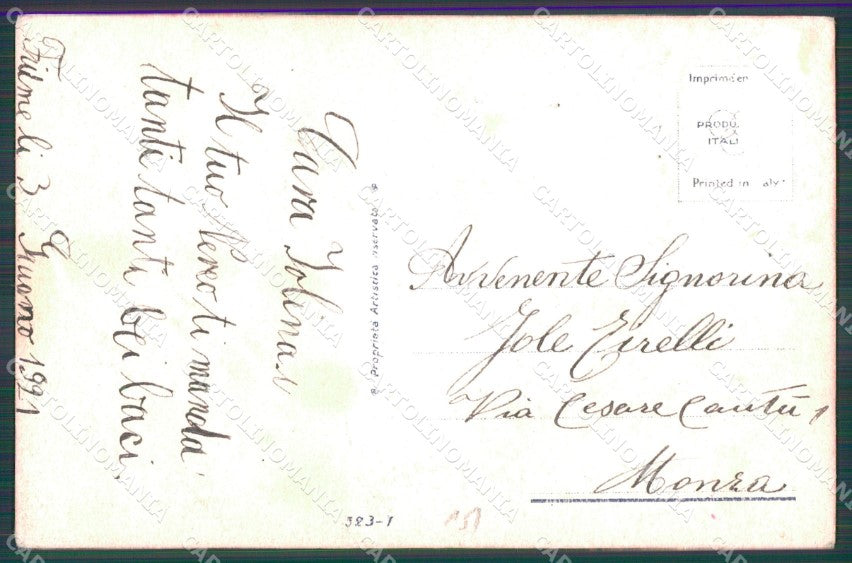 Cara Iolina
Il tuo Nereo ti manda
tanti tanti bei baci.
Fiume li 3 Giuono 1921
Proprietà Artistica riservata
Imprimé en
PRODU
ITALI
Printed in aly
Avvenente Signorina
Jole Eirelli
Via Cesare Cantù 1
Monza
323-1
151
CARTOLINOMANIA